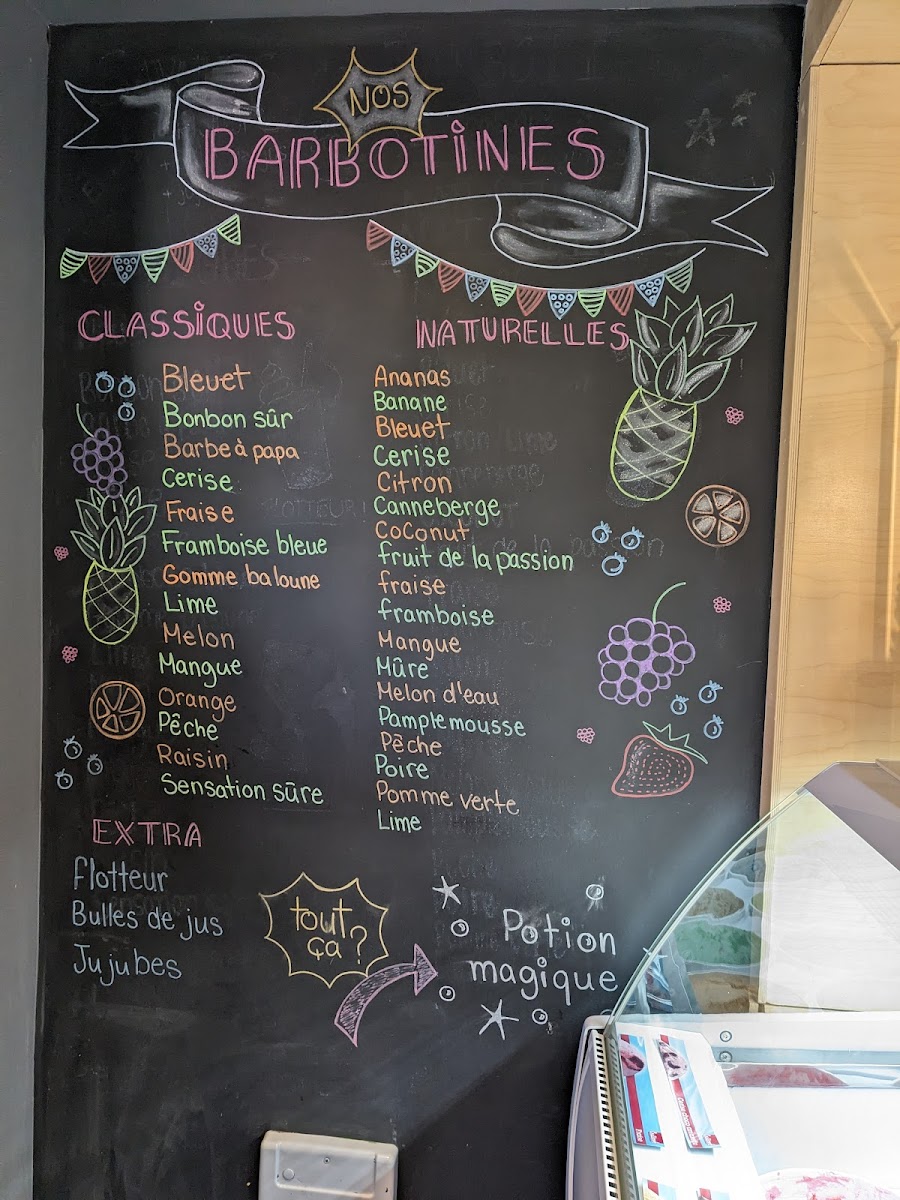 NOS
BARBOTINES
CLASSIQUES
Bleuet
Bonbon sûr
Barbe à papa
Cerise
Fraise
Framboise bleue
Gomme baloune
Lime
Melon
Mangue
Orange
Pêche
Raisin
Sensation sûre
EXTRA
Flotteur
Bulles de jus
Jujubes
NATURELLES
Ananas
Banane
Bleuet
Cerise
Citron
Canneberge
CoConut
fruit de la passion
fraise
framboise
Mangue
Mûre
Melon d'eau
Pamplemousse
Pêche
Poire
Pomme verte
Lime
tout
ça?
Potion
magique